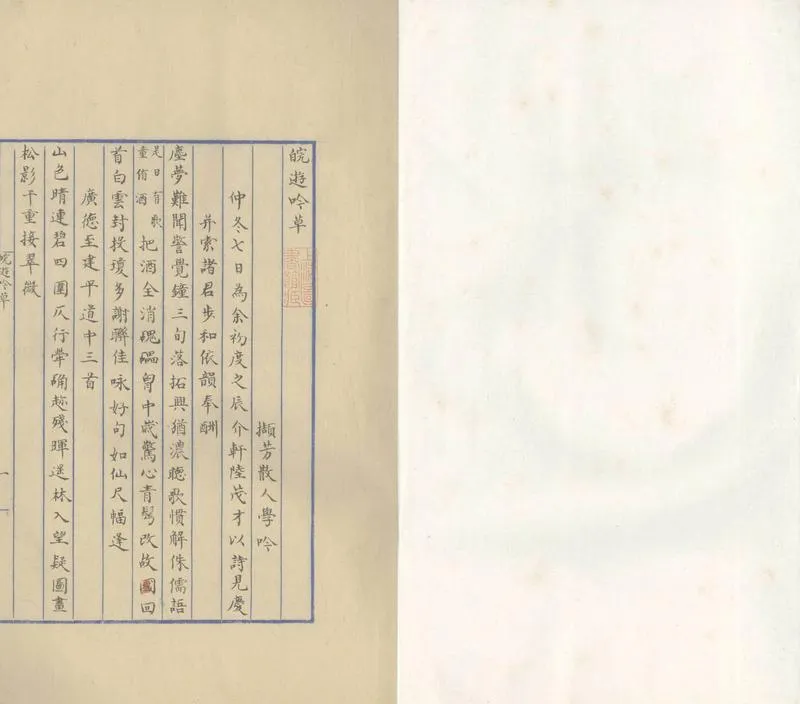 皖遊吟草
擷芳散人學吟
仲冬七日為余初度之辰介軒陸茂才以詩見慶
并索諸君步和依韻奉酬
塵夢難聞警覺鐘三旬落拓興猶濃聽歌慣解侏儒語
是日有歌
童侑酒
把酒全消磈磊胷中歲驚心青鬢改故國回
首白雲封投瓊多謝聯佳咏好句如仙尺幅逢
廣德至建平道中三首
山色晴連碧四圍仄行犖确趁殘暉送林入望疑圖畫
松影千重接翠微
皖遊吟草
一